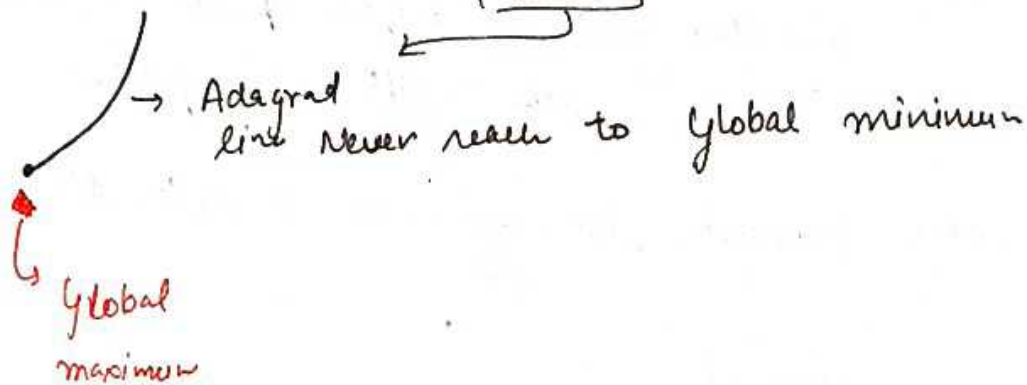 → Adagrad
line Never reach to Global minimum
Global
maximum